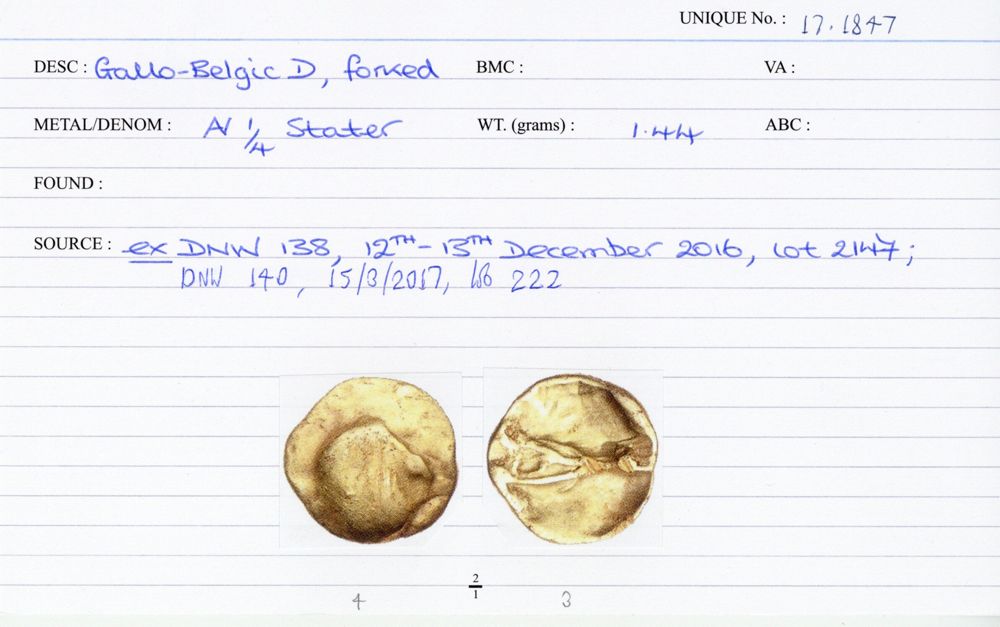 UNIQUE No. : 17.1847
DESC : Gallo-Belgic D, forked BMC : VA :
METAL/DENOM : AV 1/4 Stater WT. (grams) : 1.44 ABC :
FOUND :
SOURCE : ex DNW 138, 12TH-13TH December 2016, lot 2147;
DNW 140, 15/3/2017, lot 222
2/1
4 3